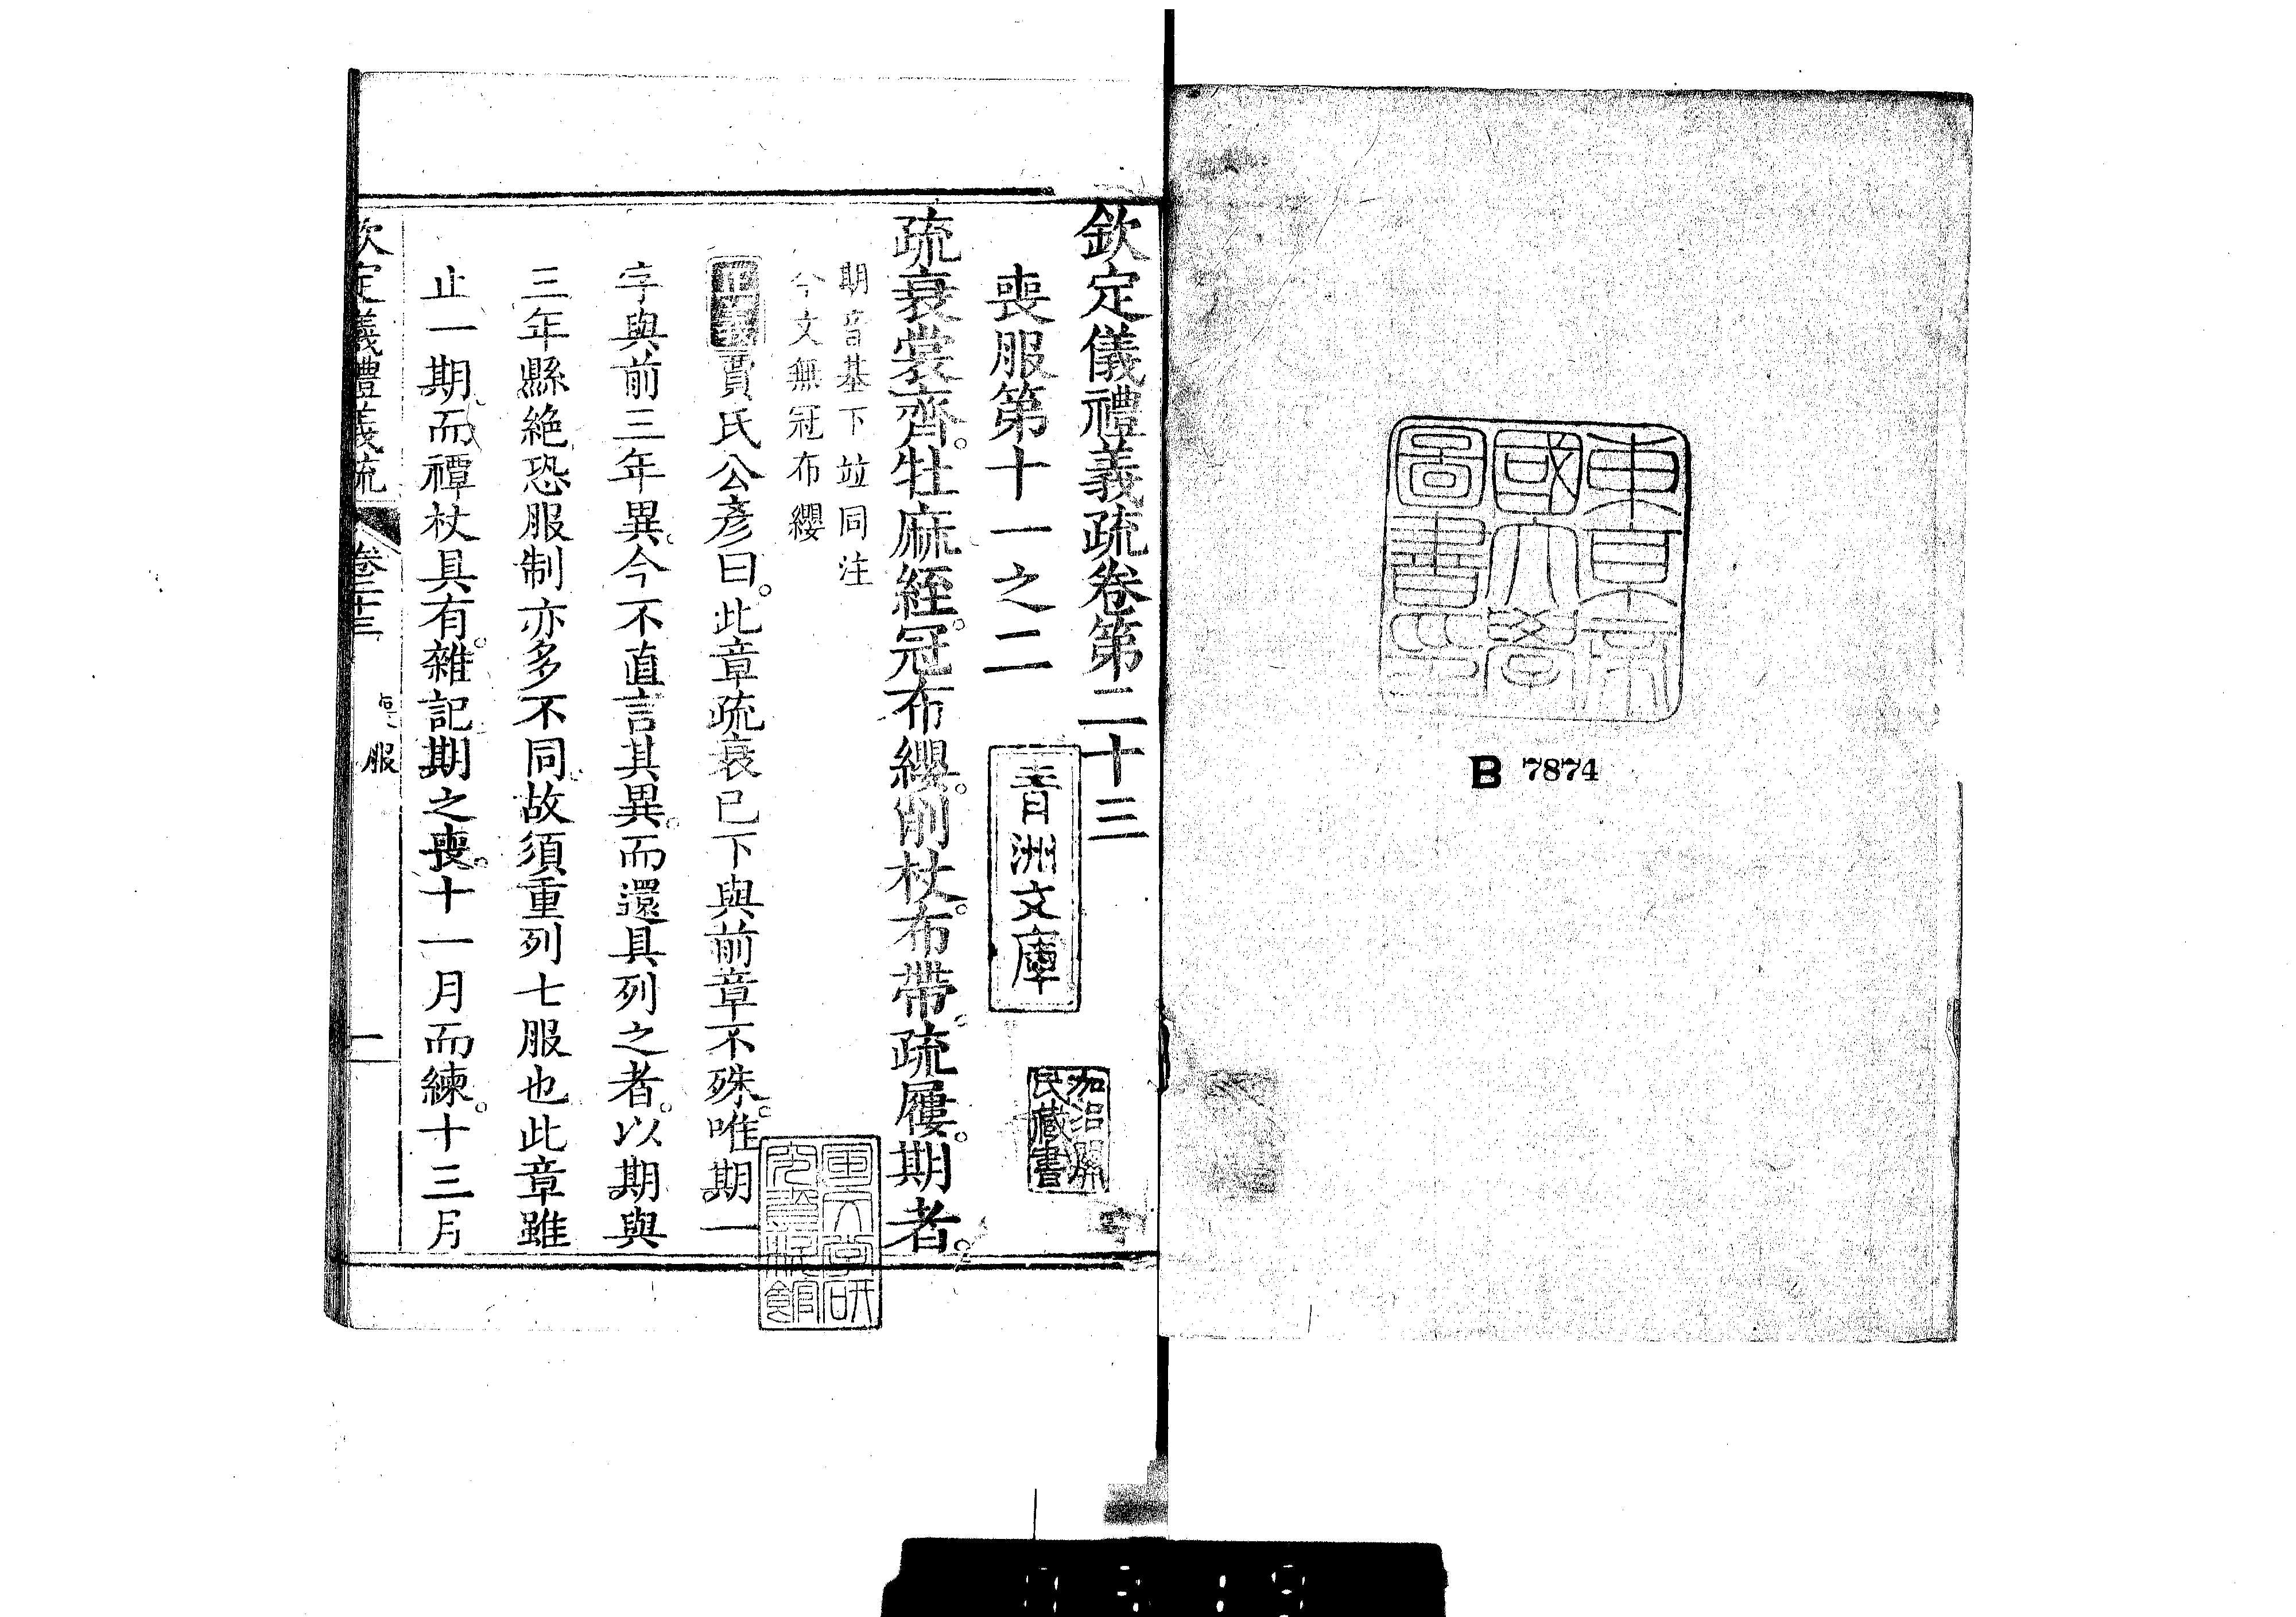 東京帝
國大學
圖書印
B 7874
欽定儀禮義疏卷第二十三
喪服第十一之二
青洲文庫
疏衰裳齊。牡麻絰。冠布纓。削杖。布帶。疏屨。期者。
期音基下竝同注
今文無冠布纓
正義賈氏公彥曰。此章疏衰已下與前章不殊。唯期一
字與前三年異。今不直言其異。而還具列之者。以期與
三年縣絶恐服制亦多不同。故須重列七服也此章雖
止一期。而禫杖具有。雜記期之喪。十一月而練。十三月
欽定儀禮義疏
卷二十三
喪服
一